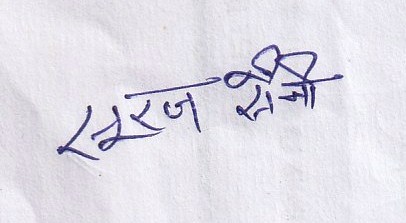 सूरज सैनी